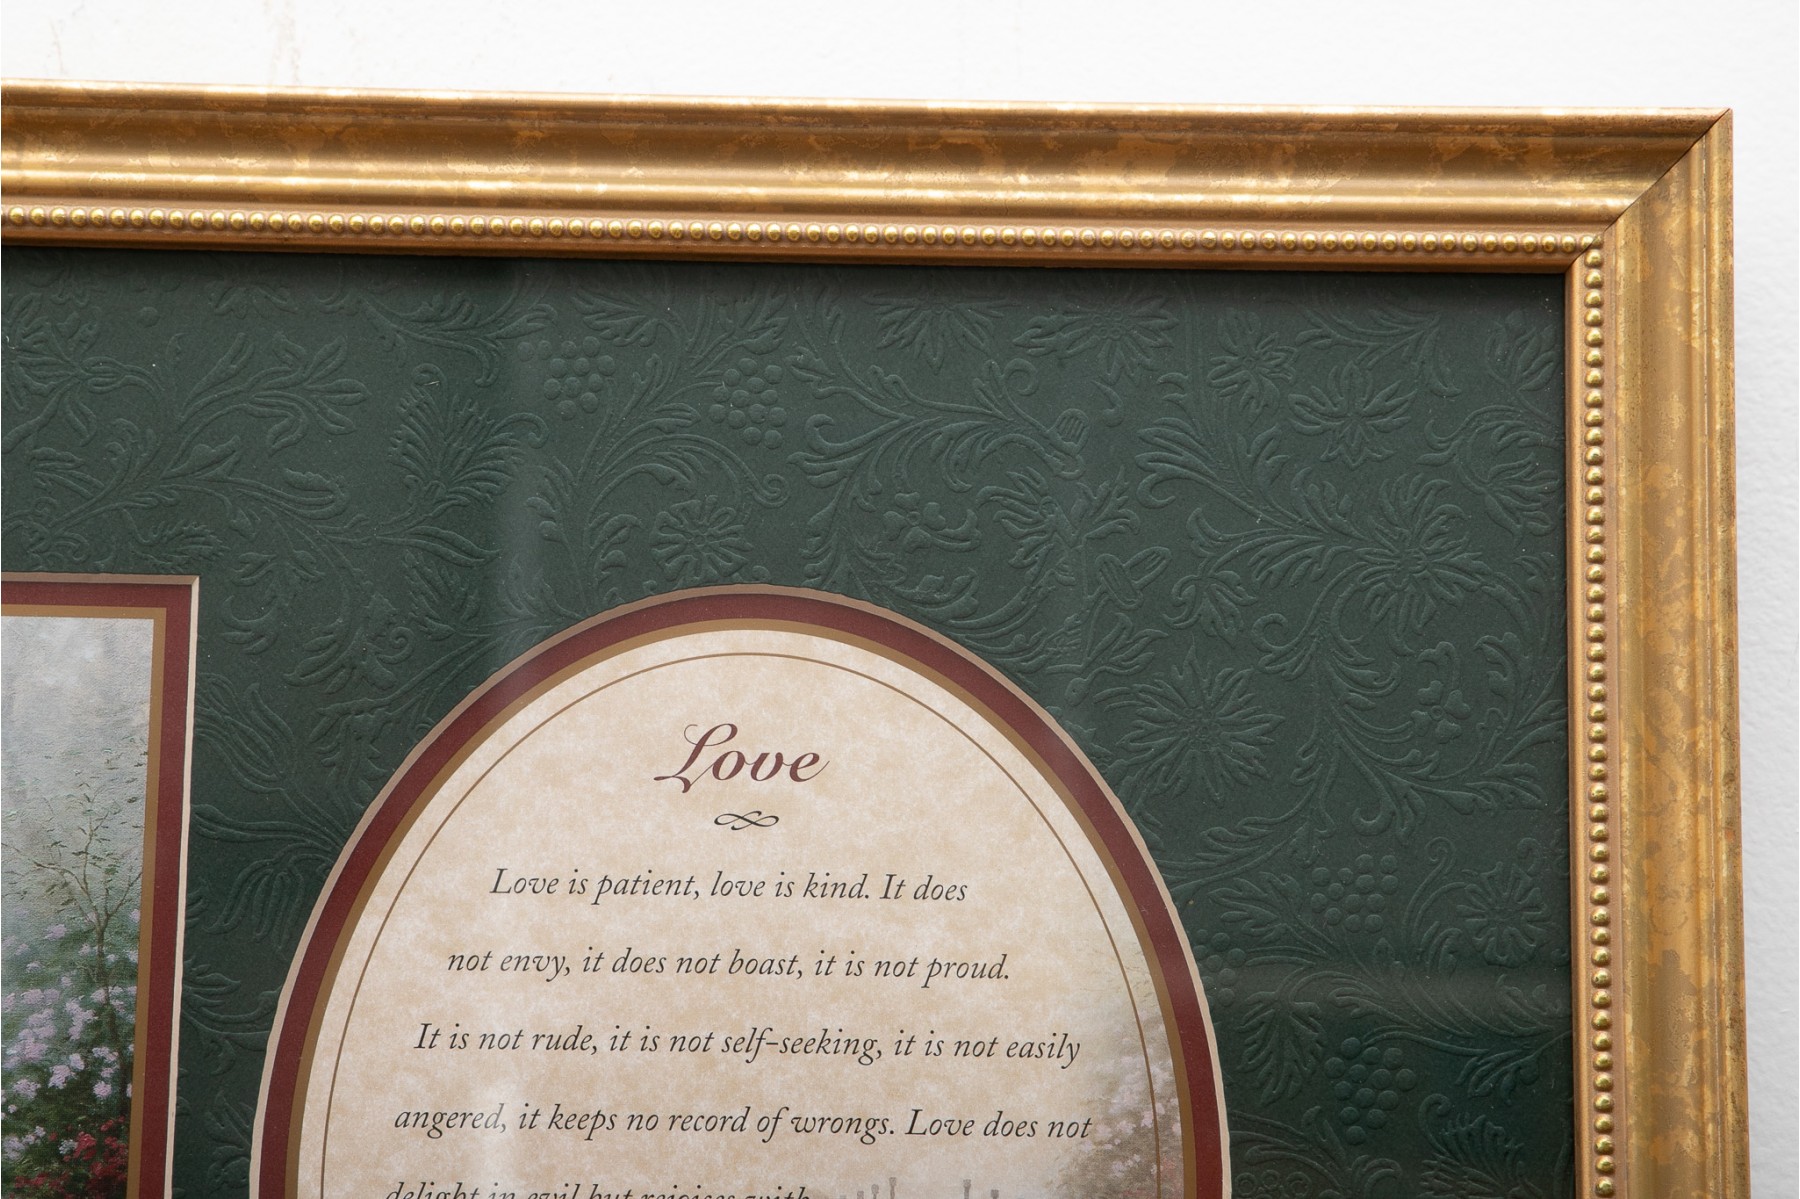 Love
Love is patient, love is kind. It does
not envy, it does not boast, it is not proud.
It is not rude, it is not self-seeking, it is not easily
angered, it keeps no record of wrongs. Love does not
delight in evil but rejoices with